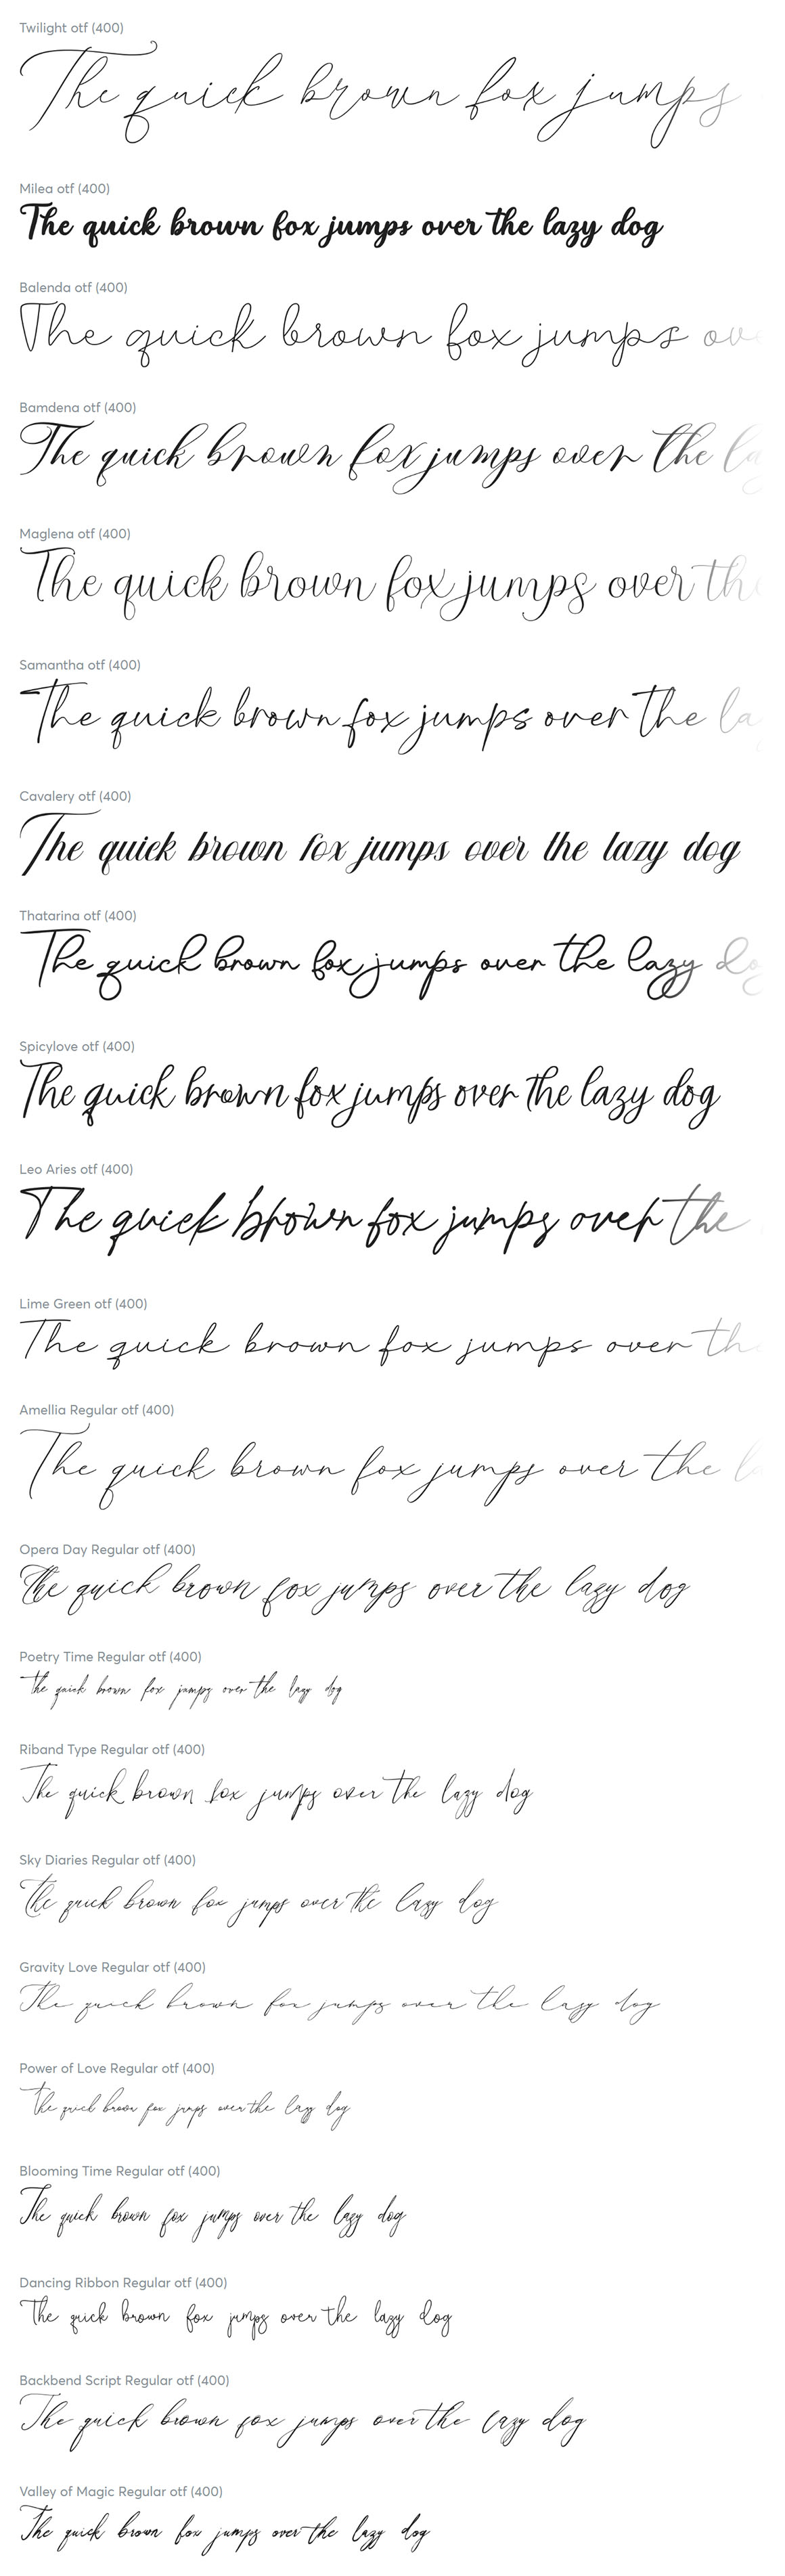 Twilight otf (400)
The quick brown fox jumps
Milea otf (400)
The quick brown fox jumps over the lazy dog
Balenda otf (400)
The quick brown fox jumps ove
Bamdena otf (400)
The quick brown fox jumps over the la
Maglena otf (400)
The quick brown fox jumps over the
Samantha otf (400)
The quick brown fox jumps over the la
Cavalery otf (400)
The quick brown fox jumps over the lazy dog
Thatarina otf (400)
The quick brown fox jumps over the lazy dog
Spicylove otf (400)
The quick brown fox jumps over the lazy dog
Leo Aries otf (400)
The quick brown fox jumps over the
Lime Green otf (400)
The quick brown fox jumps over the
Amellia Regular otf (400)
The quick brown fox jumps over the la
Opera Day Regular otf (400)
The quick brown fox jumps over the lazy dog
Poetry Time Regular otf (400)
The quick brown fox jumps over the lazy dog
Riband Type Regular otf (400)
The quick brown fox jumps over the lazy dog
Sky Diaries Regular otf (400)
The quick brown fox jumps over the lazy dog
Gravity Love Regular otf (400)
The quick brown fox jumps over the lazy dog
Power of Love Regular otf (400)
The quick brown fox jumps over the lazy dog
Blooming Time Regular otf (400)
The quick brown fox jumps over the lazy dog
Dancing Ribbon Regular otf (400)
The quick brown fox jumps over the lazy dog
Backbend Script Regular otf (400)
The quick brown fox jumps over the lazy dog
Valley of Magic Regular otf (400)
The quick brown fox jumps over the lazy dog